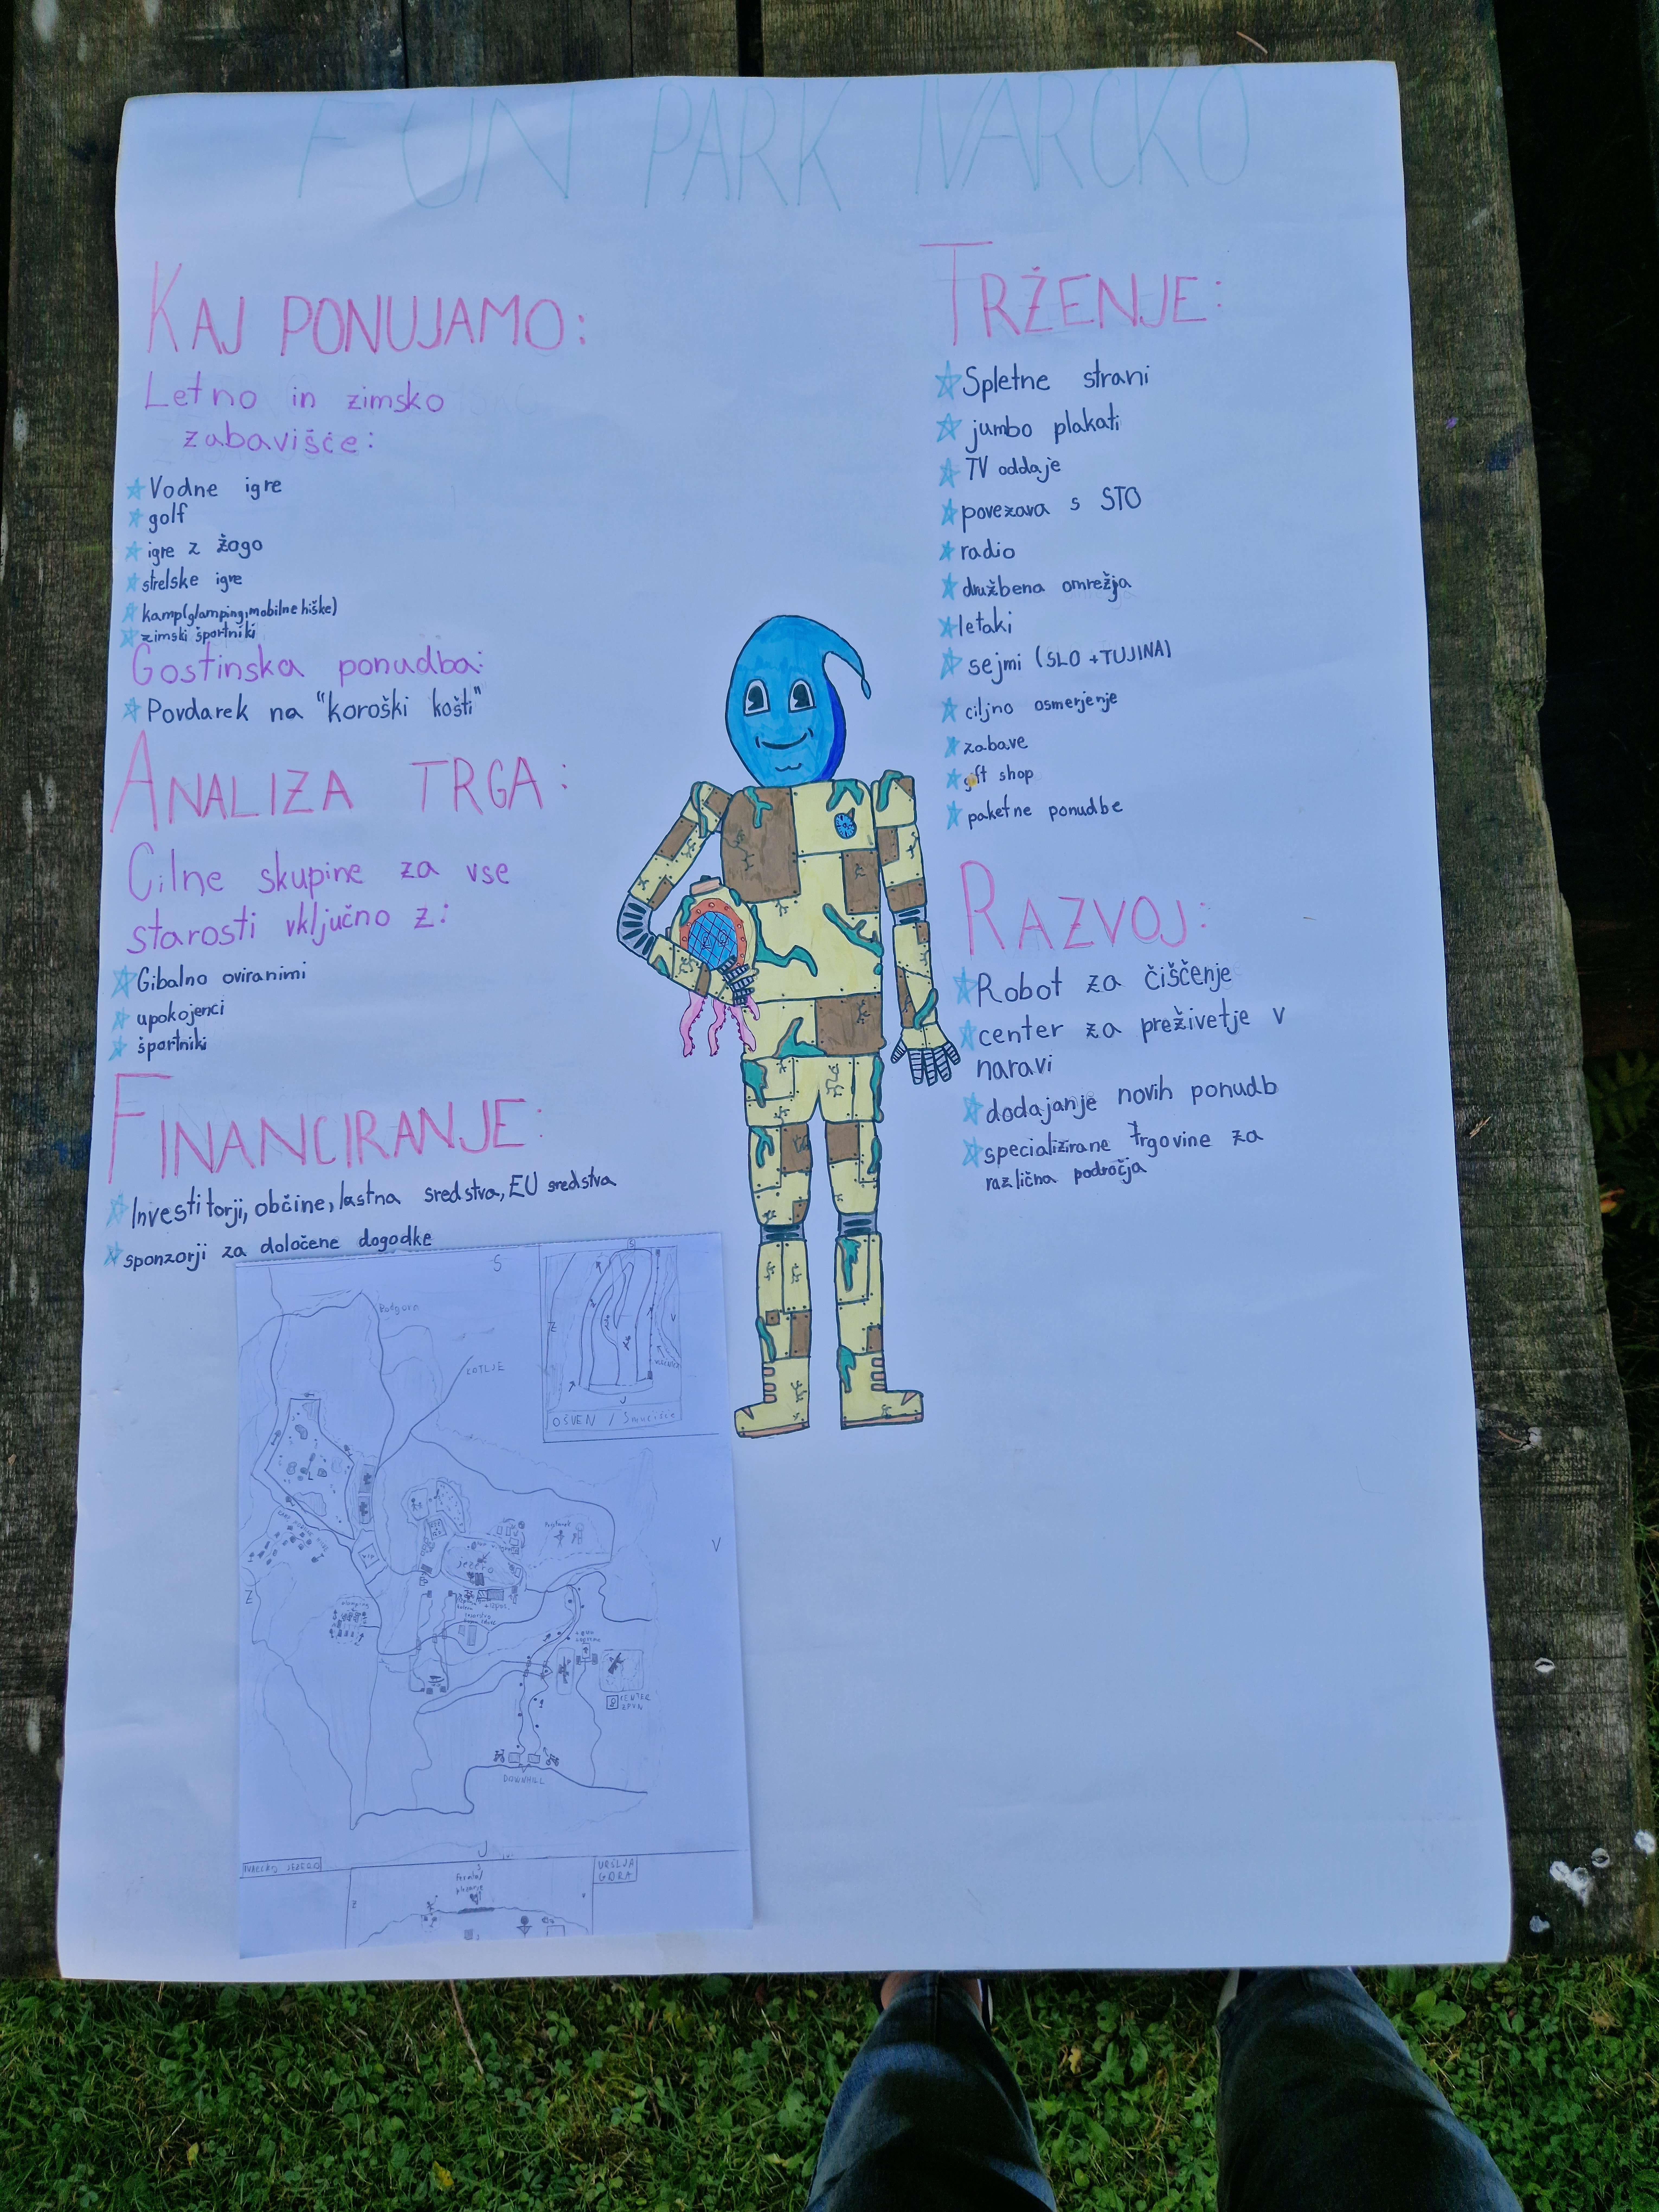 FUN PARK IVARČKO
KAJ PONUJAMO:
Letno in zimsko
zabavišče:
Vodne igre
golf
igre z žogo
strelske igre
kamp(glamping, mobilne hiške)
zimski športniki
Gostinska ponudba:
Povdarek na "koroški košti"
ANALIZA TRGA:
Cilne skupine za vse
starosti vključno z:
Gibalno oviranimi
upokojenci
športniki
FINANCIRANJE:
Investitorji, občine, lastna sredstva, EU sredstva
sponzorji za določene dogodke
TRŽENJE:
Spletne strani
jumbo plakati
TV oddaje
povezava s STO
radio
družbena omrežja
letaki
sejmi (SLO + TUJINA)
ciljno osmerjenje
zabave
gift shop
paketne ponudbe
RAZVOJ:
Robot za čiščenje
center za preživetje v
naravi
dodajanje novih ponudb
specializirane trgovine za
različna področja
S
KOTLJE
OŠVEN / Smučišče
V
Z
jezero
CENTER
DOWNHILL
J
URŠLJA
GORA